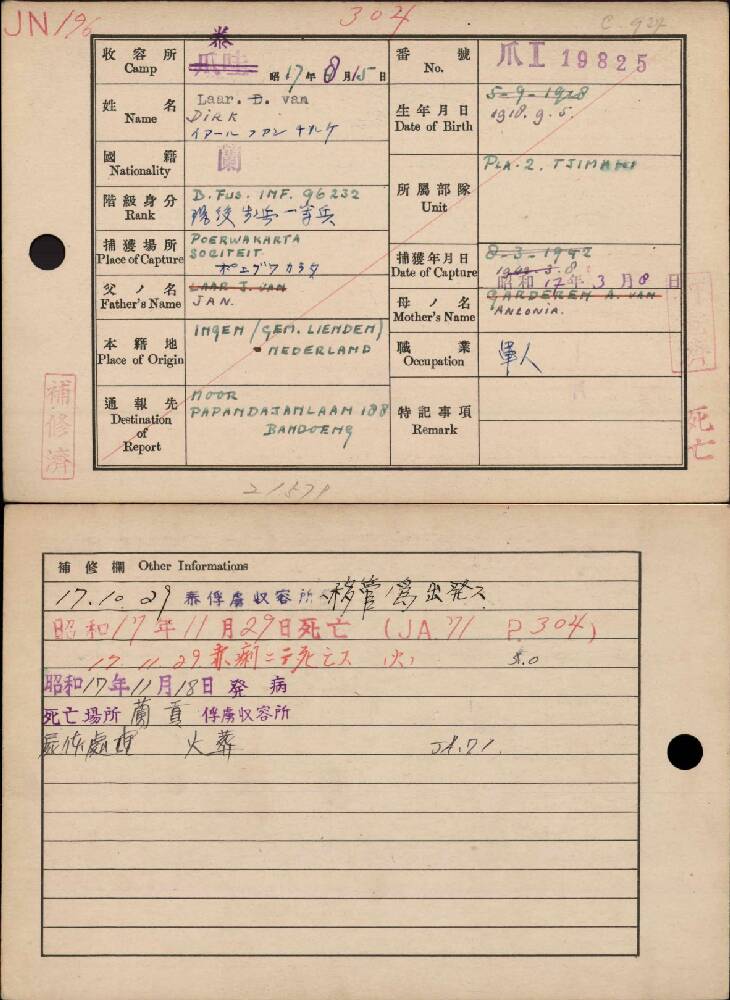 JN 196
304
C-924
収容所 Camp
泰
爪哇
昭 17年 8月 15日
番號 No.
爪I 19825
姓名 Name
Laar. D. van
DIRK
生年月日 Date of Birth
5-9-1918
1918.9.5.
國籍 Nationality
蘭
所属部隊 Unit
PLA.2. TJIMAHI
階級身分 Rank
D. FUS. INF. 96232
捕獲場所 Place of Capture
POERWAKARTA
捕獲年月日 Date of Capture
8-3-1942
昭和17年3月8日
父ノ名 Father's Name
LAAR J. VAN
JAN.
母ノ名 Mother's Name
GARDEREN A. VAN
本籍地 Place of Origin
INGEN (GEM. LIENDEN)
NEDERLAND
職業 Occupation
軍人
通報先 Destination of Report
NOOR
PAPANDAJANLAAN 188
BANDOENG
特記事項 Remark
補修済
死亡
補修欄 Other Informations
17.10.29 泰俘虜収容所ヘ移管ノ為出発ス
昭和17年11月29日死亡 (JA.71 P.304)
17.11.29. 赤痢ニテ死亡ス (火)
昭和17年11月18日発病
死亡場所 蘭貢 俘虜収容所
屍体處理 火葬 JA.71.